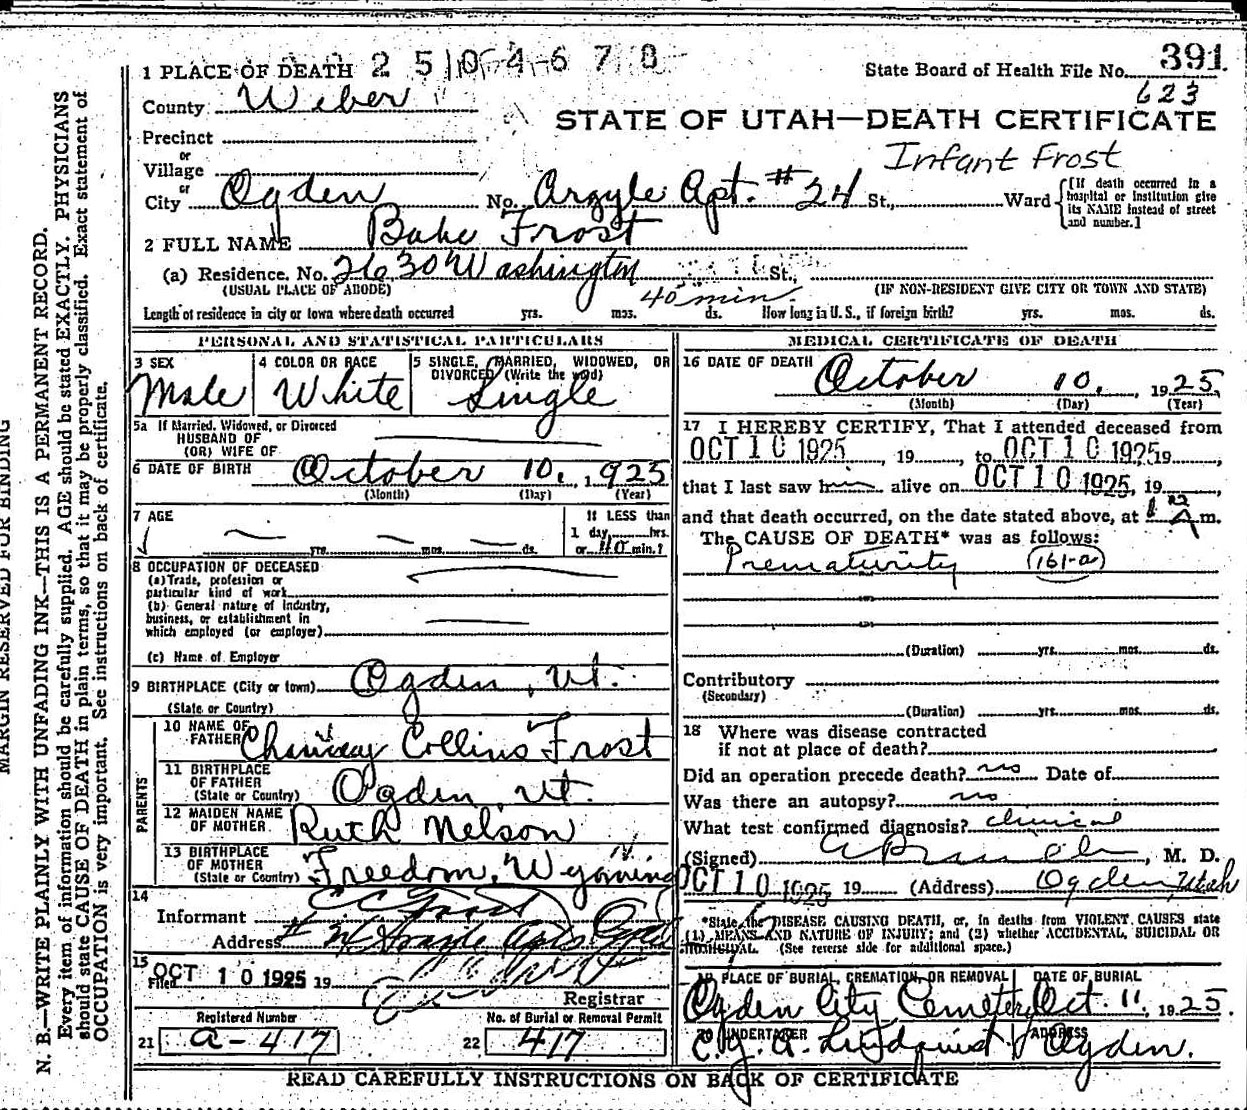 1 PLACE OF DEATH 2 5 0 4 6 7 8
State Board of Health File No. 391
623
County Weber
STATE OF UTAH—DEATH CERTIFICATE
Precinct
or
Village
Infant Frost
or
City Ogden No. Argyle Apt. #24 St., Ward [If death occurred in a hospital or institution give its NAME instead of street and number.]
2 FULL NAME Babe Frost
(a) Residence. No. 2630 Washington St.,
(USUAL PLACE OF ABODE) (IF NON-RESIDENT GIVE CITY OR TOWN AND STATE)
40 min.
Length of residence in city or town where death occurred yrs. mos. ds. How long in U. S., if foreign birth? yrs. mos. ds.
PERSONAL AND STATISTICAL PARTICULARS
3 SEX
Male
4 COLOR OR RACE
White
5 SINGLE, MARRIED, WIDOWED, OR DIVORCED (Write the word)
Single
5a If Married, Widowed, or Divorced
HUSBAND OF
(OR) WIFE OF
6 DATE OF BIRTH October 10, 1925
(Month) (Day) (Year)
7 AGE
yrs. mos. ds.
If LESS than
1 day, hrs.
or 40 min.?
8 OCCUPATION OF DECEASED
(a) Trade, profession or
particular kind of work
(b) General nature of Industry,
business, or establishment in
which employed (or employer)
(c) Name of Employer
9 BIRTHPLACE (City or town) Ogden, Ut.
(State or Country)
PARENTS
10 NAME OF
FATHER Chauncey Collins Frost
11 BIRTHPLACE
OF FATHER
(State or Country) Ogden, Ut.
12 MAIDEN NAME
OF MOTHER Ruth Nelson
13 BIRTHPLACE
OF MOTHER
(State or Country) Freedom, Wyoming
14
Informant C C Frost
Address # 24 Argyle Apts
15
Filed OCT 10 1925 19
Registrar
Registered Number
21 a-417
No. of Burial or Removal Permit
22 417
MEDICAL CERTIFICATE OF DEATH
16 DATE OF DEATH October 10, 1925
(Month) (Day) (Year)
17 I HEREBY CERTIFY, That I attended deceased from
OCT 10 1925, 19, to OCT 10 1925 19,
that I last saw him alive on OCT 10 1925, 19,
and that death occurred, on the date stated above, at A m.
The CAUSE OF DEATH* was as follows:
Prematurity (161-a)
(Duration) yrs. mos. ds.
Contributory
(Secondary)
(Duration) yrs. mos. ds.
18 Where was disease contracted
if not at place of death?
Did an operation precede death? no Date of
Was there an autopsy? no
What test confirmed diagnosis? clinical
(Signed) , M. D.
OCT 10 1925 19 (Address) Ogden, Utah
*State the DISEASE CAUSING DEATH, or, in deaths from VIOLENT CAUSES state
(1) MEANS AND NATURE OF INJURY; and (2) whether ACCIDENTAL, SUICIDAL OR
HOMICIDAL. (See reverse side for additional space.)
19 PLACE OF BURIAL, CREMATION, OR REMOVAL
Ogden City Cemetery
DATE OF BURIAL
Oct. 11, 1925.
20 UNDERTAKER
Lindquist
ADDRESS
Ogden.
READ CAREFULLY INSTRUCTIONS ON BACK OF CERTIFICATE
MARGIN RESERVED FOR BINDING
N. B.—WRITE PLAINLY WITH UNFADING INK—THIS IS A PERMANENT RECORD.
Every item of information should be carefully supplied. AGE should be stated EXACTLY. PHYSICIANS
should state CAUSE OF DEATH in plain terms, so that it may be properly classified. Exact statement of
OCCUPATION is very important. See instructions on back of certificate.